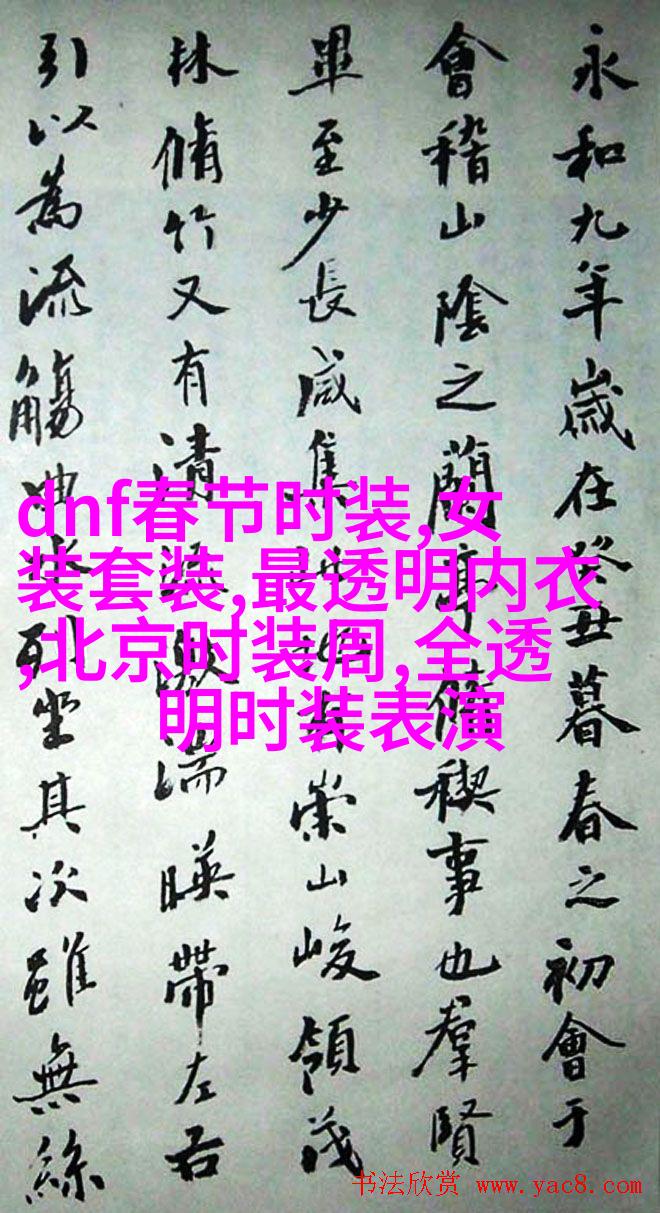 永和九年歲在癸丑暮春之初會于
會稽山陰之蘭亭脩稧事也羣賢
畢至少長咸集此地有崇山峻領茂
林脩竹又有清流激湍暎帶左右
引以為流觴曲水列坐其次雖無絲
dnf春节时装,女
装套装,最透明内衣
,北京时装周,全透
明时装表演
书法欣赏 www.yac8.com